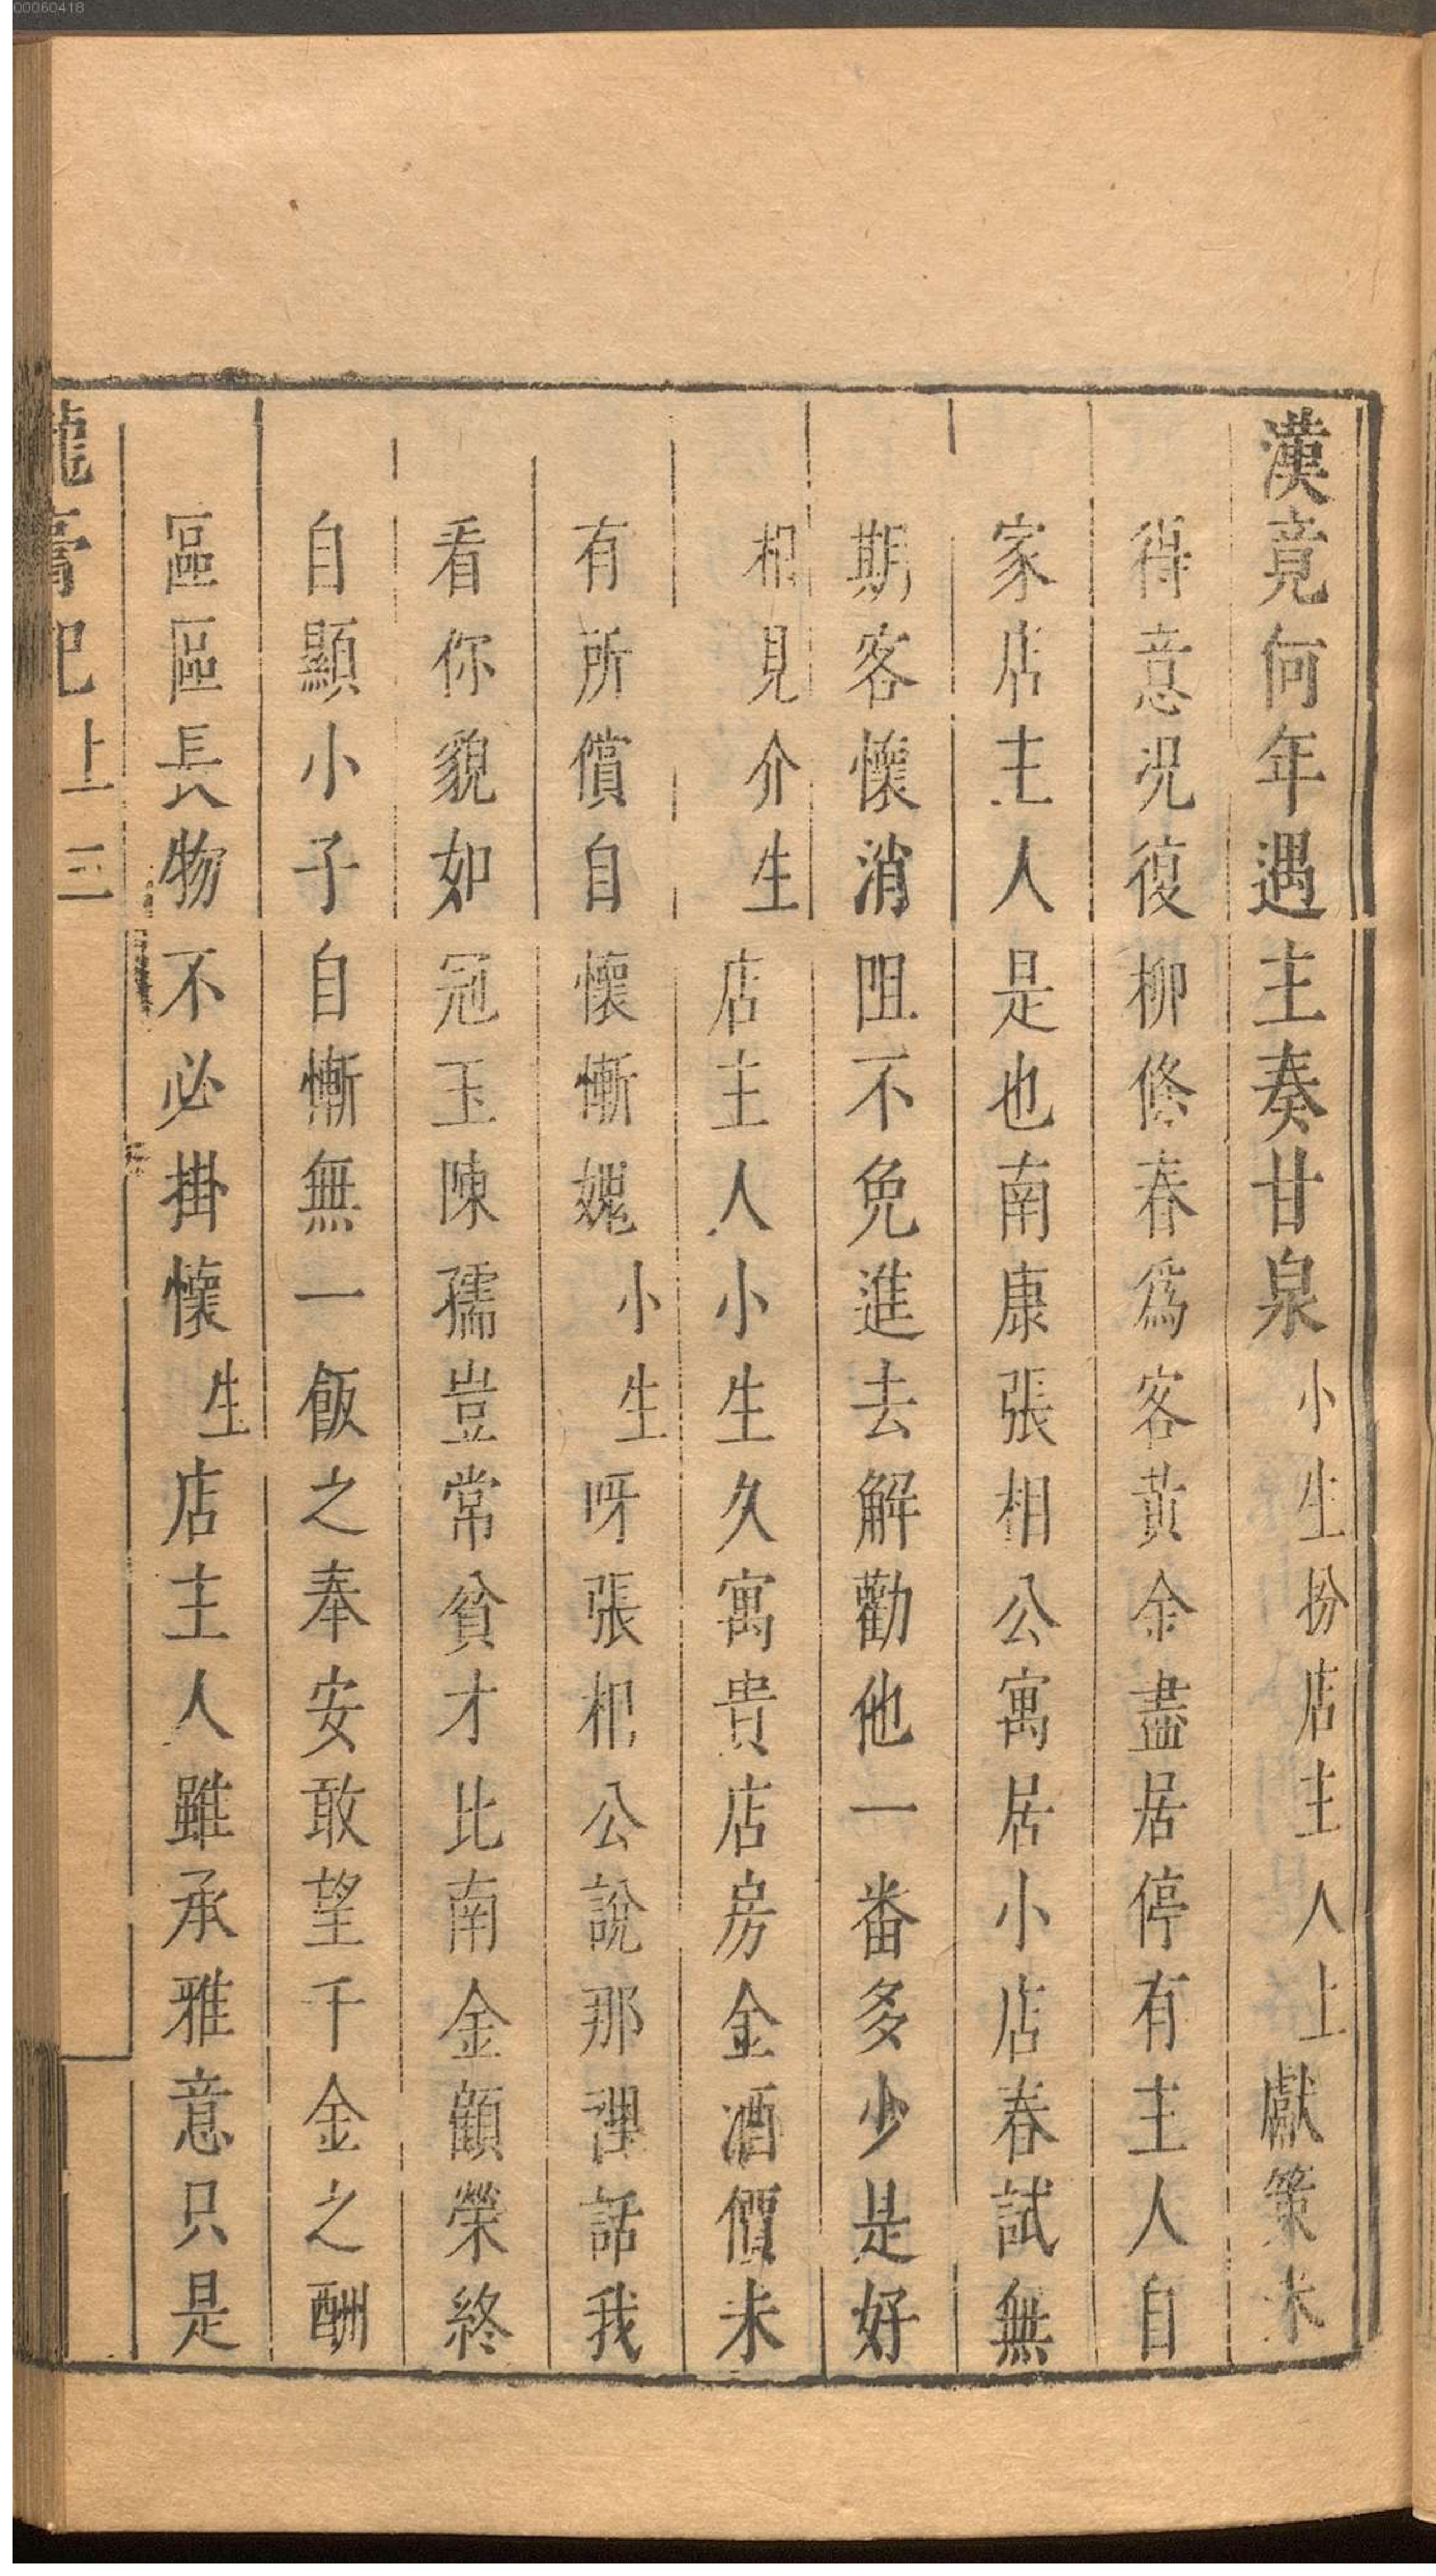 00060418
漢竟何年遇主奏甘泉小生扮店主人上獻策未
得意況復柳條春爲客黃金盡居停有主人自
家店主人是也南康張相公寓居小店春試無
期客懷消阻不免進去解勸他一番多少是好
相見介生店主人小生久寓貴店房金酒價未
有所償自懷慚媿小生呀張相公說那裡話我
看你貌如冠玉陳孺豈常貧才比南金顧榮終
自顯小子自慚無一飯之奉安敢望千金之酬
區區長物不必掛懷生店主人雖承雅意只是
龍膏記上 三